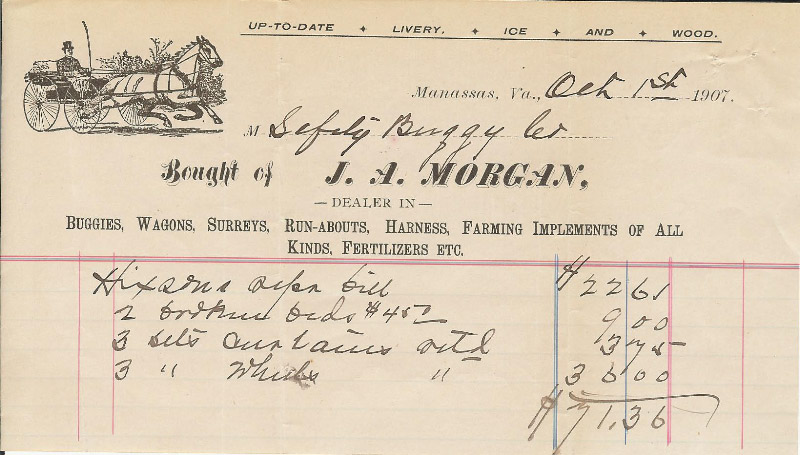 UP-TO-DATE ✦ LIVERY. ✦ ICE ✦ AND ✦ WOOD.
Manassas, Va., Oct 1st 1907.
M Safety Buggy Co
Bought of J. A. MORGAN,
— DEALER IN —
BUGGIES, WAGONS, SURREYS, RUN-ABOUTS, HARNESS, FARMING IMPLEMENTS OF ALL
KINDS, FERTILIZERS ETC.
Hixsons bill $22 61
2 broken beds $4 50 9 00
3 sets curtains retd 3 75
3 " Wheels " 36 00
$71.36